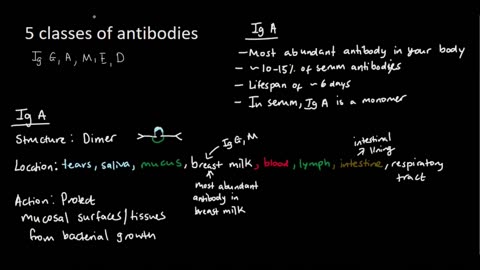 5 classes of antibodies
Ig G, A, M, E, D
Ig A
- Most abundant antibody in your body
- ~ 10-15% of serum antibodies
- Lifespan of ~ 6 days
- In serum, Ig A is a monomer
Ig A
Structure: Dimer
Ig G, M
intestinal
lining
Location: tears, saliva, mucus, breast milk, blood, lymph, intestine, respiratory
tract
most abundant
antibody in
breast milk
Action: Protect
mucosal surfaces/tissues
from bacterial growth